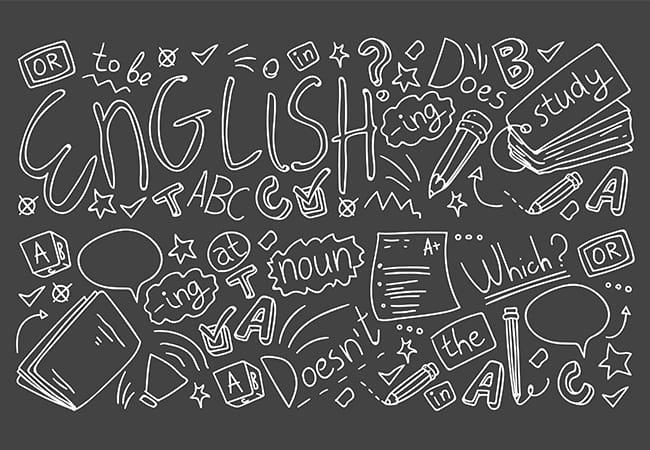 OR
to be
in
?
Does
B
study
ENGLISH
ing
T
ABC
C
A
A B
at
noun
A+
Which?
OR
ing
T
A
Doesn't
the
A B
in
A
C